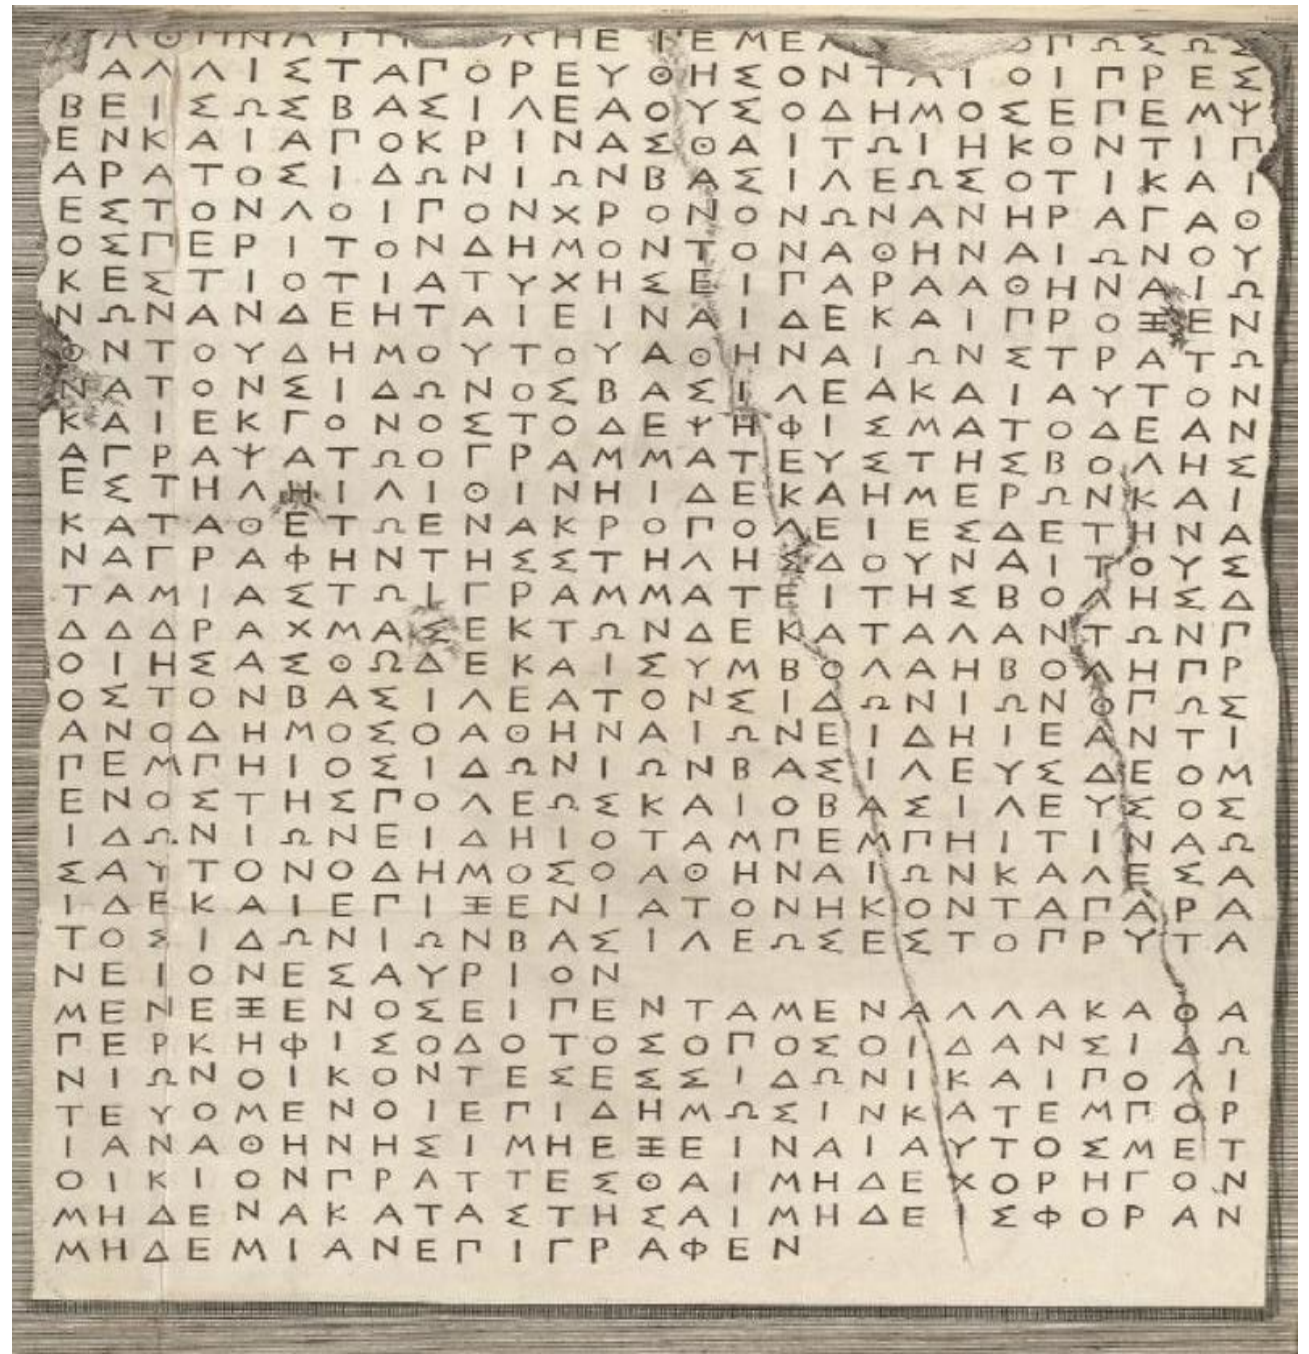 ΑΘΗΝΑ ΛΗΕΠΕΜΕΛ ΟΠΩΣΩΣ
ΑΛΛΙΣΤΑΠΟΡΕΥΘΗΣΟΝΤΑΙΟΙΠΡΕΣ
ΒΕΙΣΩΣΒΑΣΙΛΕΑΟΥΣΟΔΗΜΟΣΕΠΕΜΨ
ΕΝΚΑΙΑΠΟΚΡΙΝΑΣΘΑΙΤΩΙΗΚΟΝΤΙΠ
ΑΡΑΤΟΣΙΔΩΝΙΩΝΒΑΣΙΛΕΩΣΟΤΙΚΑΙ
ΕΣΤΟΝΛΟΙΠΟΝΧΡΟΝΟΝΩΝΑΝΗΡΑΓΑΘ
ΟΣΠΕΡΙΤΟΝΔΗΜΟΝΤΟΝΑΘΗΝΑΙΩΝΟΥ
ΚΕΣΤΙΟΤΙΑΤΥΧΗΣΕΙΠΑΡΑΑΘΗΝΑΙΩ
ΝΩΝΑΝΔΕΗΤΑΙΕΙΝΑΙΔΕΚΑΙΠΡΟΞΕΝ
ΟΝΤΟΥΔΗΜΟΥΤΟΥΑΘΗΝΑΙΩΝΣΤΡΑΤΩ
ΝΑΤΟΝΣΙΔΩΝΟΣΒΑΣΙΛΕΑΚΑΙΑΥΤΟΝ
ΚΑΙΕΚΓΟΝΟΣΤΟΔΕΨΗΦΙΣΜΑΤΟΔΕΑΝ
ΑΓΡΑΨΑΤΩΟΓΡΑΜΜΑΤΕΥΣΤΗΣΒΟΛΗΣ
ΕΣΤΗΛΗΙΛΙΘΙΝΗΙΔΕΚΑΗΜΕΡΩΝΚΑΙ
ΚΑΤΑΘΕΤΩΕΝΑΚΡΟΠΟΛΕΙΕΣΔΕΤΗΝΑ
ΝΑΓΡΑΦΗΝΤΗΣΣΤΗΛΗΣΔΟΥΝΑΙΤΟΥΣ
ΤΑΜΙΑΣΤΩΙΓΡΑΜΜΑΤΕΙΤΗΣΒΟΛΗΣΔ
ΔΔΔΡΑΧΜΑΣΕΚΤΩΝΔΕΚΑΤΑΛΑΝΤΩΝΠ
ΟΙΗΣΑΣΘΩΔΕΚΑΙΣΥΜΒΟΛΑΗΒΟΛΗΠΡ
ΟΣΤΟΝΒΑΣΙΛΕΑΤΟΝΣΙΔΩΝΙΩΝΟΠΩΣ
ΑΝΟΔΗΜΟΣΟΑΘΗΝΑΙΩΝΕΙΔΗΙΕΑΝΤΙ
ΠΕΜΠΗΙΟΣΙΔΩΝΙΩΝΒΑΣΙΛΕΥΣΔΕΟΜ
ΕΝΟΣΤΗΣΠΟΛΕΩΣΚΑΙΟΒΑΣΙΛΕΥΣΟΣ
ΙΔΩΝΙΩΝΕΙΔΗΙΟΤΑΜΠΕΜΠΗΙΤΙΝΑΩ
ΣΑΥΤΟΝΟΔΗΜΟΣΟΑΘΗΝΑΙΩΝΚΑΛΕΣΑ
ΙΔΕΚΑΙΕΠΙΞΕΝΙΑΤΟΝΗΚΟΝΤΑΠΑΡΑ
ΤΟΣΙΔΩΝΙΩΝΒΑΣΙΛΕΩΣΕΣΤΟΠΡΥΤΑ
ΝΕΙΟΝΕΣΑΥΡΙΟΝ
ΜΕΝΕΞΕΝΟΣΕΙΠΕΝΤΑΜΕΝΑΛΛΑΚΑΘΑ
ΠΕΡΚΗΦΙΣΟΔΟΤΟΣΟΠΟΣΟΙΔΑΝΣΙΔΩ
ΝΙΩΝΟΙΚΟΝΤΕΣΕΣΣΙΔΩΝΙΚΑΙΠΟΛΙ
ΤΕΥΟΜΕΝΟΙΕΠΙΔΗΜΩΣΙΝΚΑΤΕΜΠΟΡ
ΙΑΝΑΘΗΝΗΣΙΜΗΕΞΕΙΝΑΙΑΥΤΟΣΜΕΤ
ΟΙΚΙΟΝΠΡΑΤΤΕΣΘΑΙΜΗΔΕΧΟΡΗΓΟΝ
ΜΗΔΕΝΑΚΑΤΑΣΤΗΣΑΙΜΗΔΕΙΣΦΟΡΑΝ
ΜΗΔΕΜΙΑΝΕΠΙΓΡΑΦΕΝ